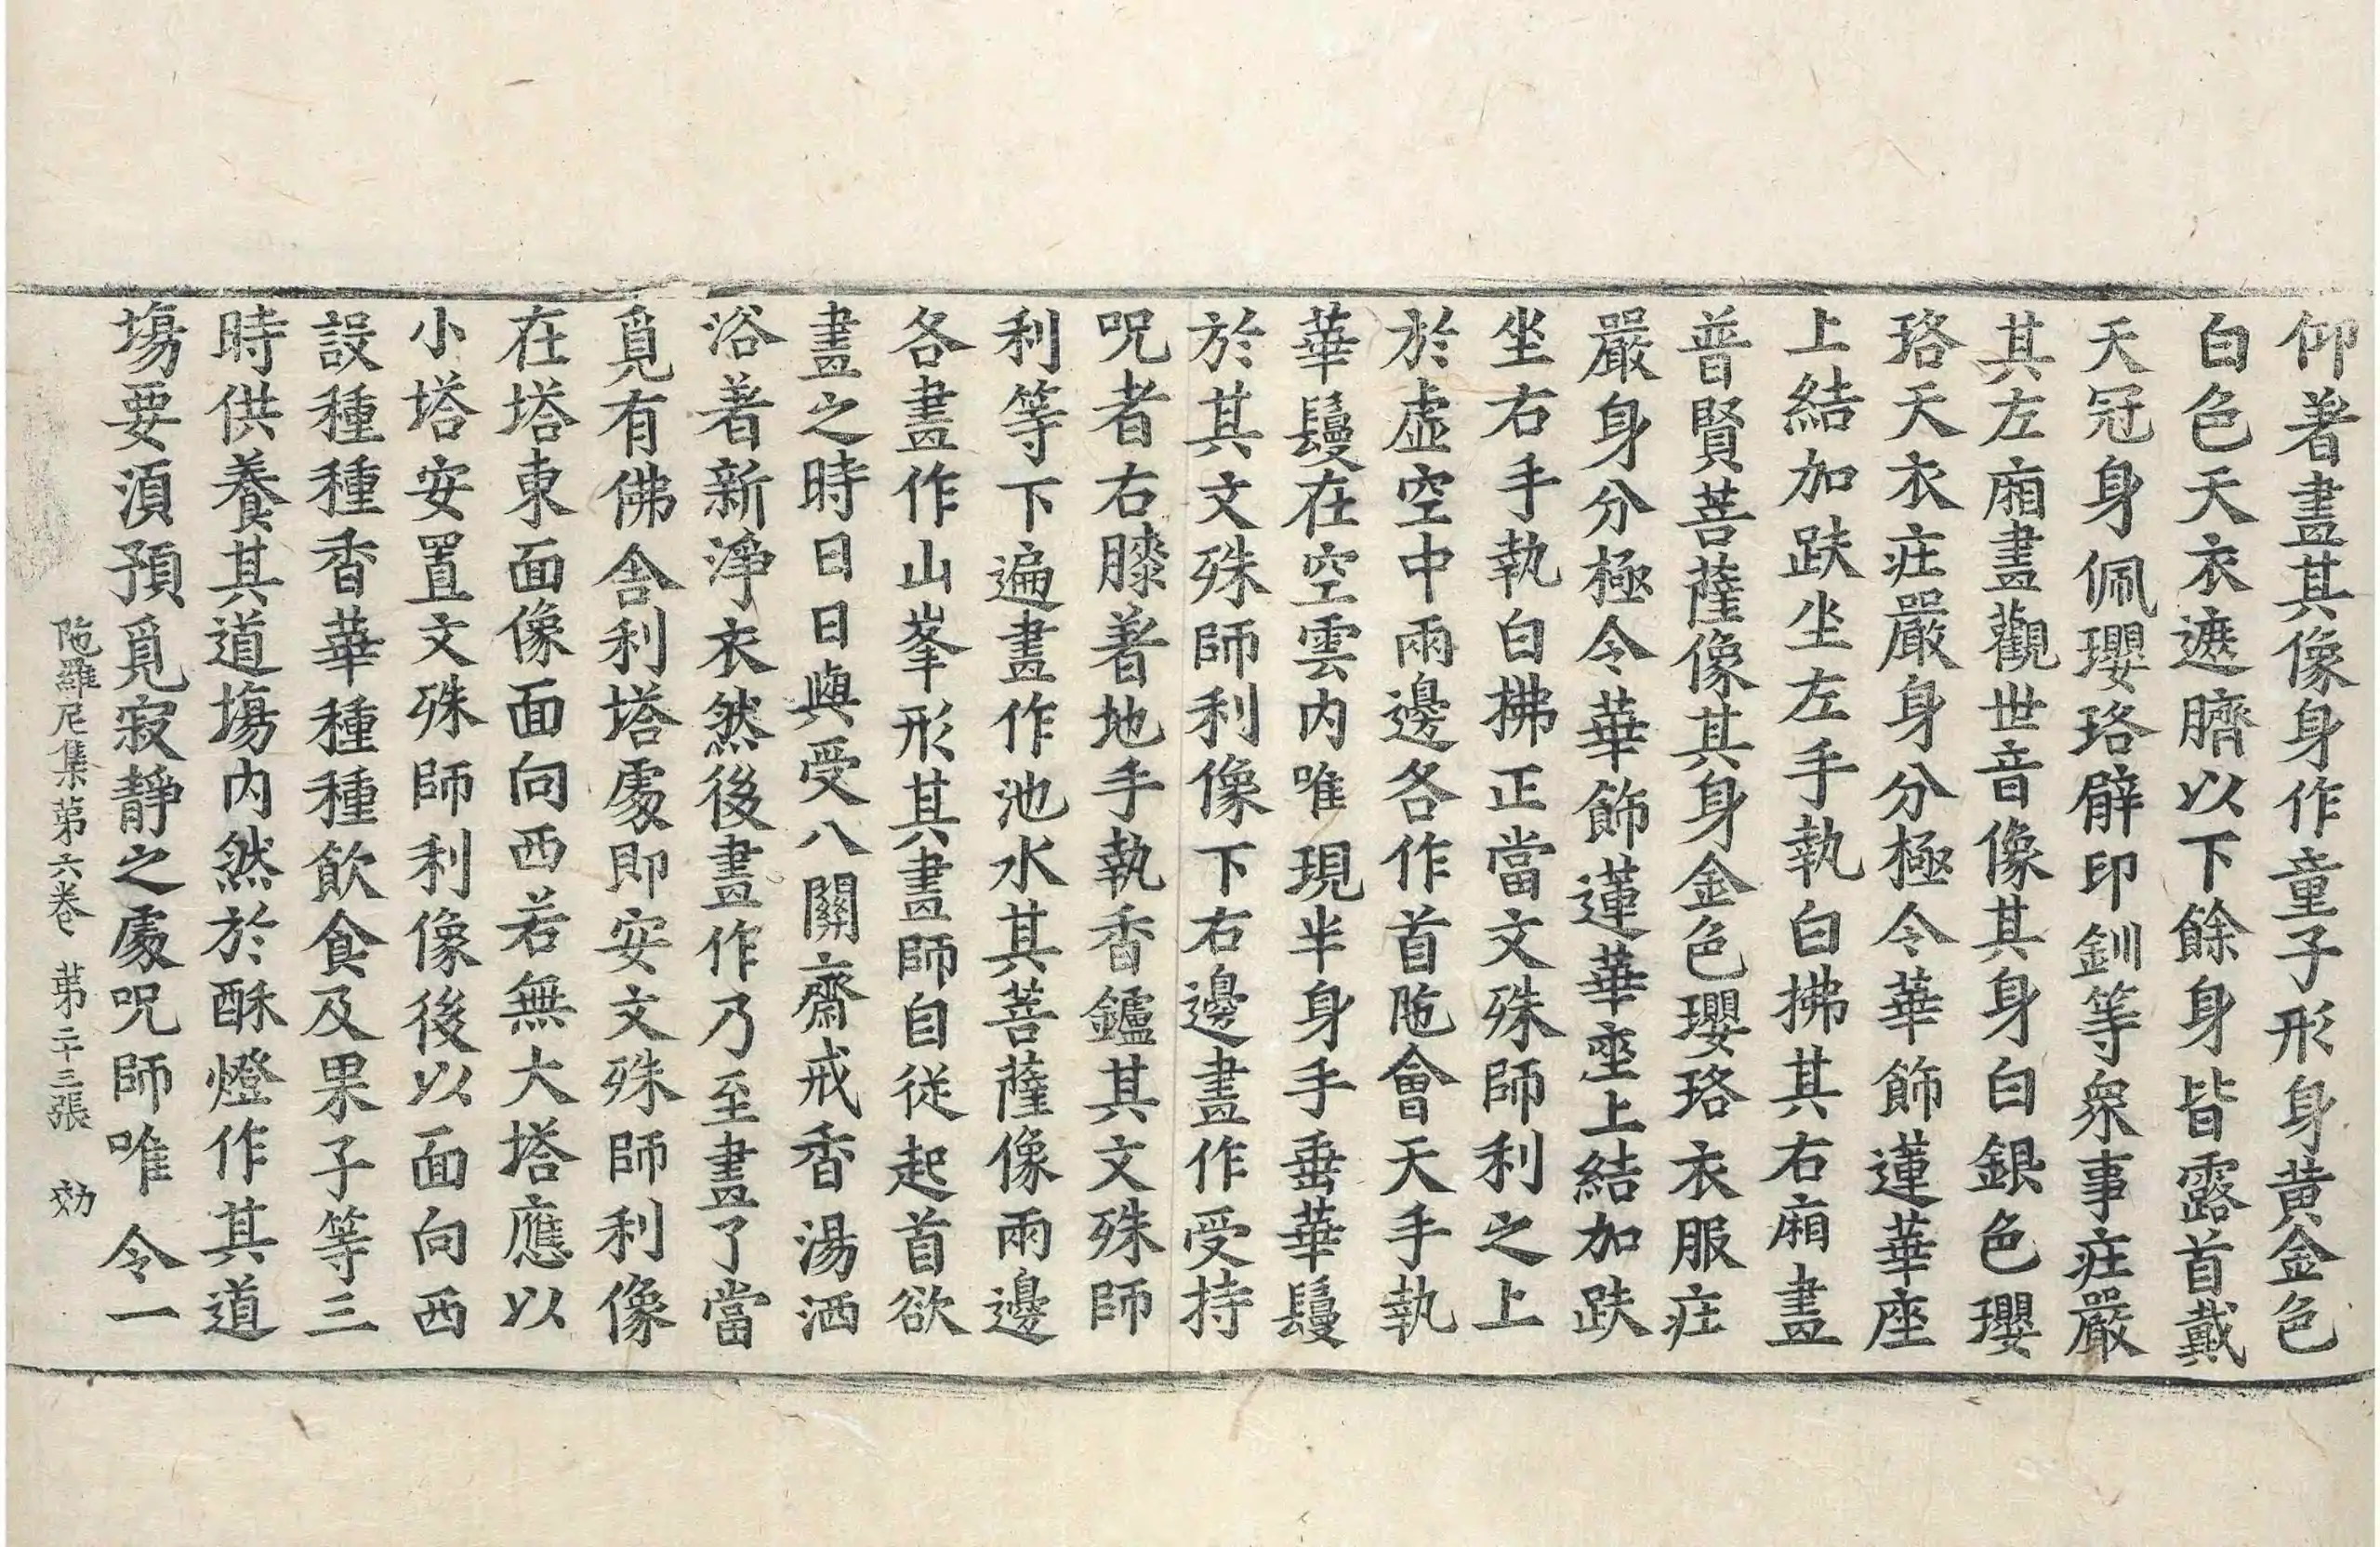 仰著畫其像身作童子形身黄金色
白色天衣遮臍以下餘身皆露首戴
天冠身佩瓔珞臂印釧等衆事庄嚴
其左廂畫觀世音像其身白銀色瓔
珞天衣庄嚴身分極令華飾蓮華座
上結加趺坐左手執白拂其右廂畫
普賢菩薩像其身金色瓔珞衣服庄
嚴身分極令華飾蓮華座上結加趺
坐右手執白拂正當文殊師利之上
於虛空中兩邊各作首陁會天手執
華鬘在空雲内唯現半身手垂華鬘
於其文殊師利像下右邊畫作受持
呪者右膝著地手執香鑪其文殊師
利等下遍畫作池水其菩薩像兩邊
各畫作山峯形其畫師自從起首欲
畫之時日日與受八關齋戒香湯洒
浴著新淨衣然後畫作乃至畫了當
覓有佛舎利塔處即安文殊師利像
在塔東面像面向西若無大塔應以
小塔安置文殊師利像後以面向西
設種種香華種種飲食及果子等三
時供養其道塲内然於酥燈作其道
塲要湏預覓寂靜之處呪師唯令一
陁羅尼集第六卷 第二十三張 効